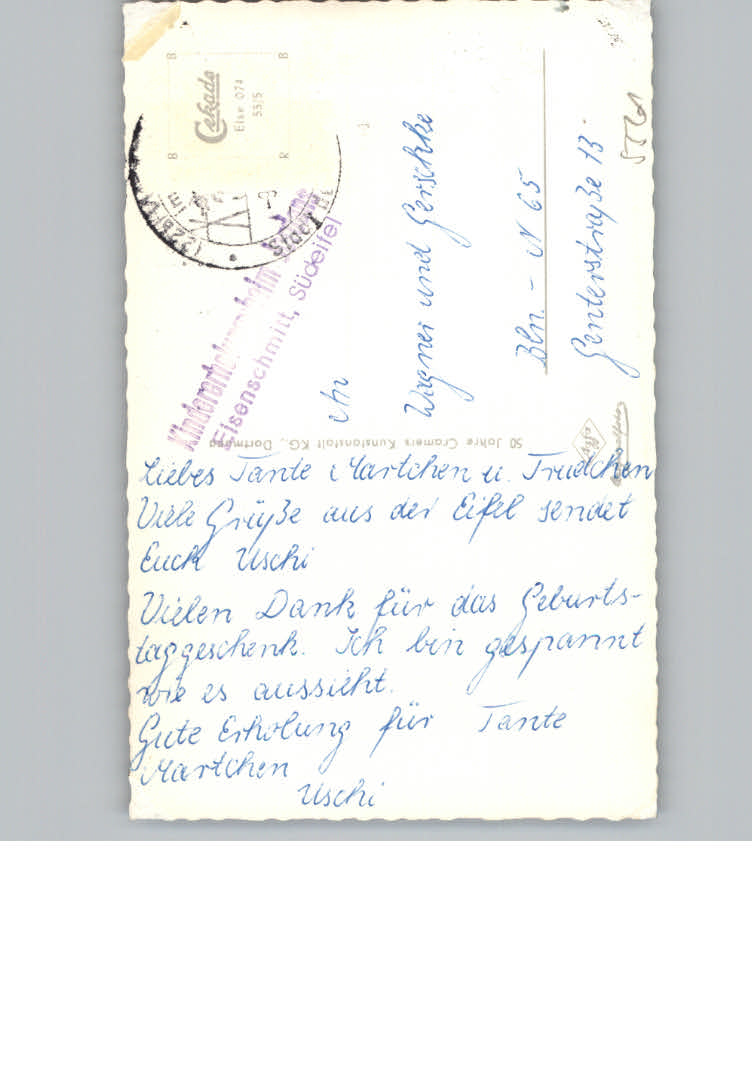 Liebes Tante Martchen u. Trudchen
Viele Grüße aus der Eifel sendet
Euch Uschi
Vielen Dank für das Geburts-
taggeschenk. Ich bin gespannt
wie es aussieht.
Gute Erholung für Tante
Martchen
Uschi
An
Wagner und Gerschke
Bln. - N 65
Genterstraße 13
50 Jahre Cramers Kunstanstalt KG., Dortmund
Kindererholungsheim
Eisenschmitt, Südeifel
Cekade
Else 074
53/5
B
B
B
R